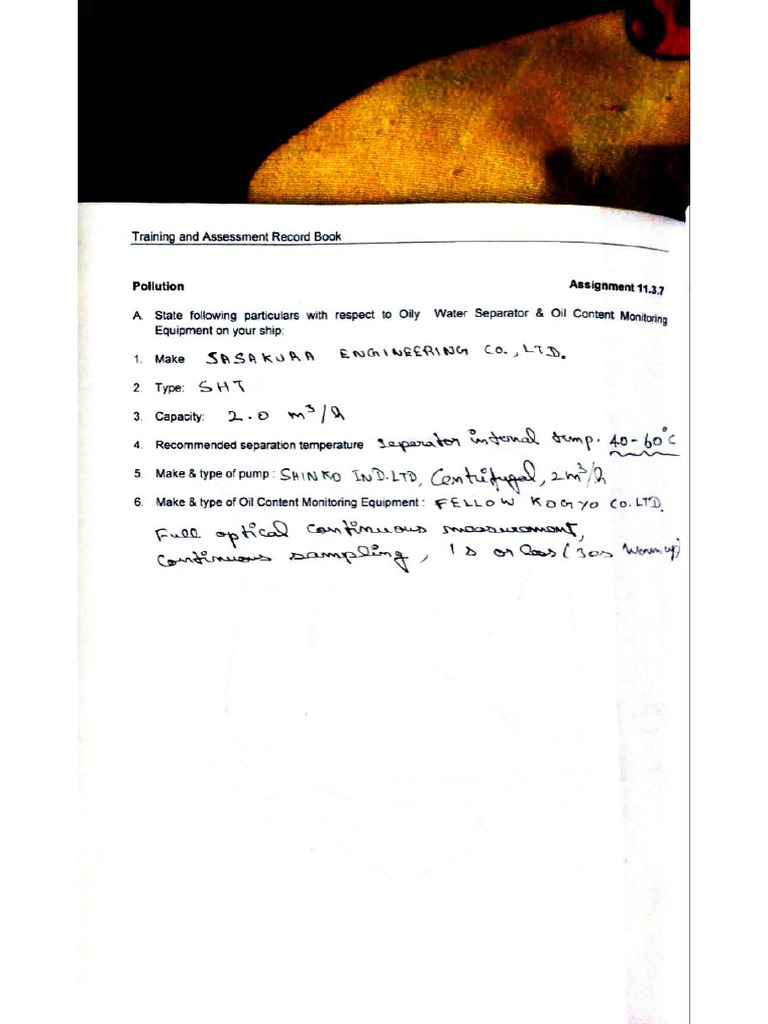 Training and Assessment Record Book
Pollution Assignment 11.3.7
A. State following particulars with respect to Oily Water Separator & Oil Content Monitoring
Equipment on your ship:
1. Make SASAKURA ENGINEERING CO., LTD.
2. Type: SHT
3. Capacity: 2.0 m³/h
4. Recommended separation temperature seperator internal temp. 40-60°C
5. Make & type of pump: SHINKO IND.LTD, Centrifugal, 2m³/h
6. Make & type of Oil Content Monitoring Equipment: FELLOW KOGYO CO.LTD.
Full optical continuous measurement,
continuous sampling, 1s or less (30s Warm up)